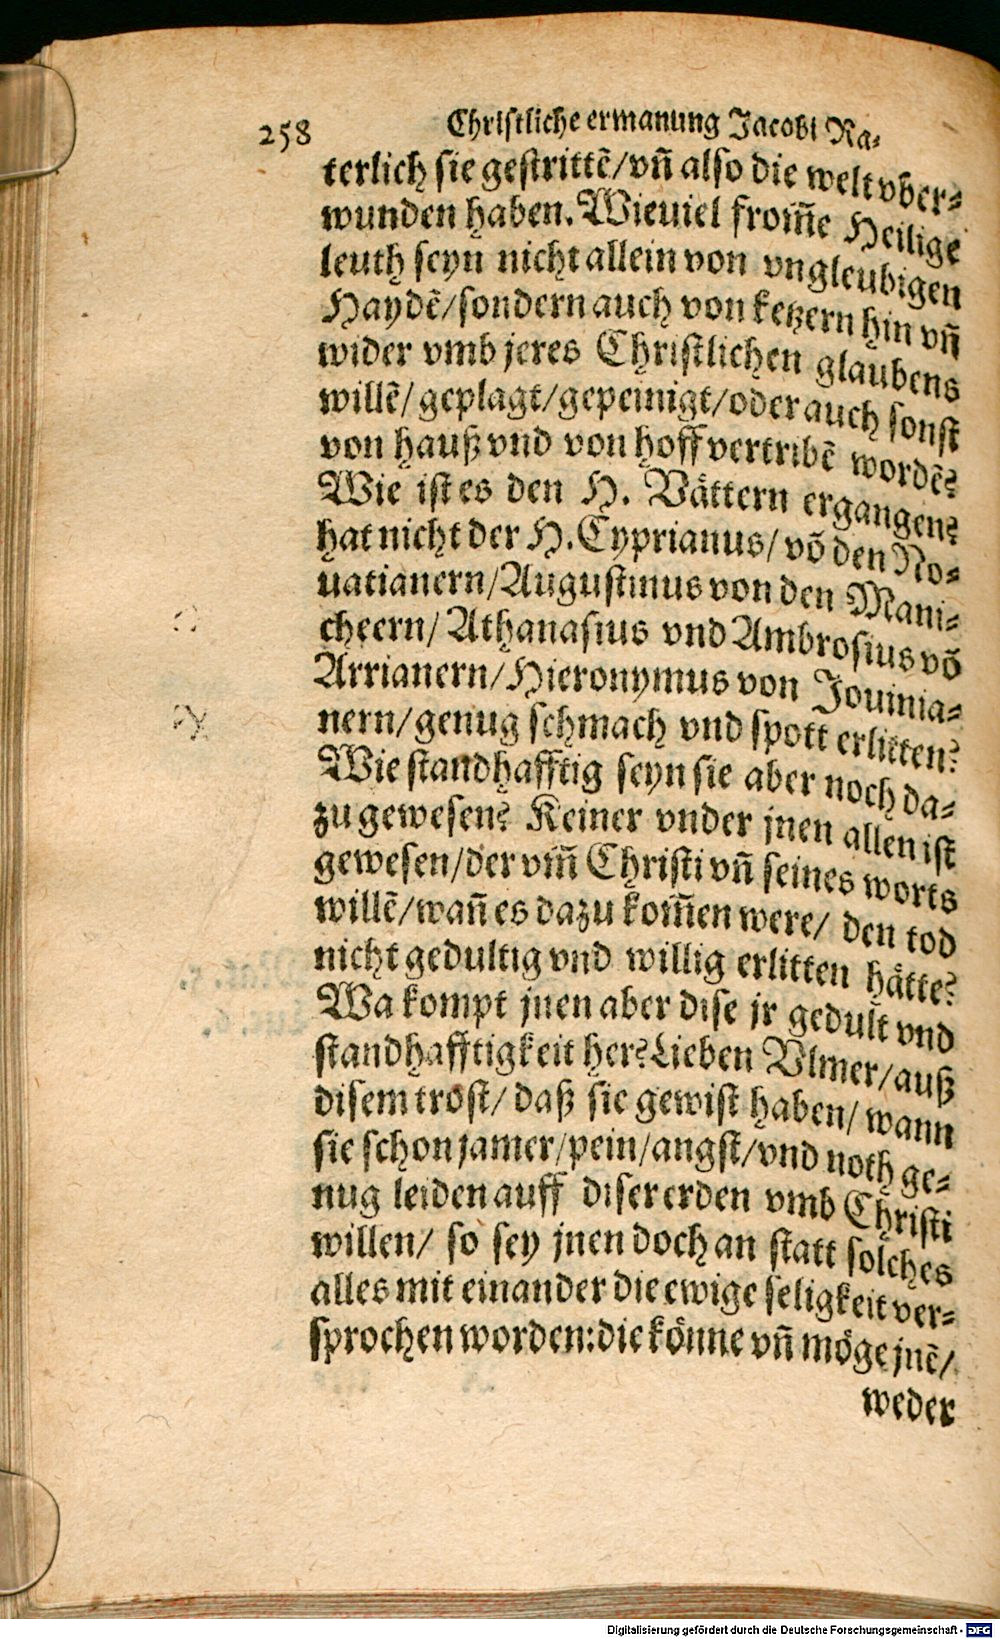 258
Christliche ermanung Jacobi Ra-
terlich sie gestrittē/vñ also die welt vber-
wunden haben. Wieuiel from̄e Heilige
leuth seyn nicht allein von vngleubigen
Haydē/sondern auch von ketzern hin vñ
wider vmb jeres Christlichen glaubens
willē/geplagt/gepeinigt/oder auch sonst
von hauß vnd von hoff vertribē wordē?
Wie ist es den H. Vättern ergangen?
hat nicht der H. Cyprianus/vō den No-
uatianern/Augustinus von den Mani-
cheern/Athanasius vnd Ambrosius vō
Arrianern/Hieronymus von Jouinia-
nern/genug schmach vnd spott erlitten?
Wie standhafftig seyn sie aber noch da-
zu gewesen? Keiner vnder jnen allen ist
gewesen/der vm̄ Christi vñ seines worts
willē/wañ es dazu kom̄en were/ den tod
nicht gedultig vnd willig erlitten hätte?
Wa kompt jnen aber dise jr gedult vnd
standhafftigkeit her? Lieben Vlmer/auß
disem trost/daß sie gewist haben/wann
sie schon jamer/pein/angst/vnd noth ge-
nug leiden auff diser erden vmb Christi
willen/ so sey jnen doch an statt solches
alles mit einander die ewige seligkeit ver-
sprochen worden: die könne vñ möge jnē/
weder
Digitalisierung gefördert durch die Deutsche Forschungsgemeinschaft - DFG